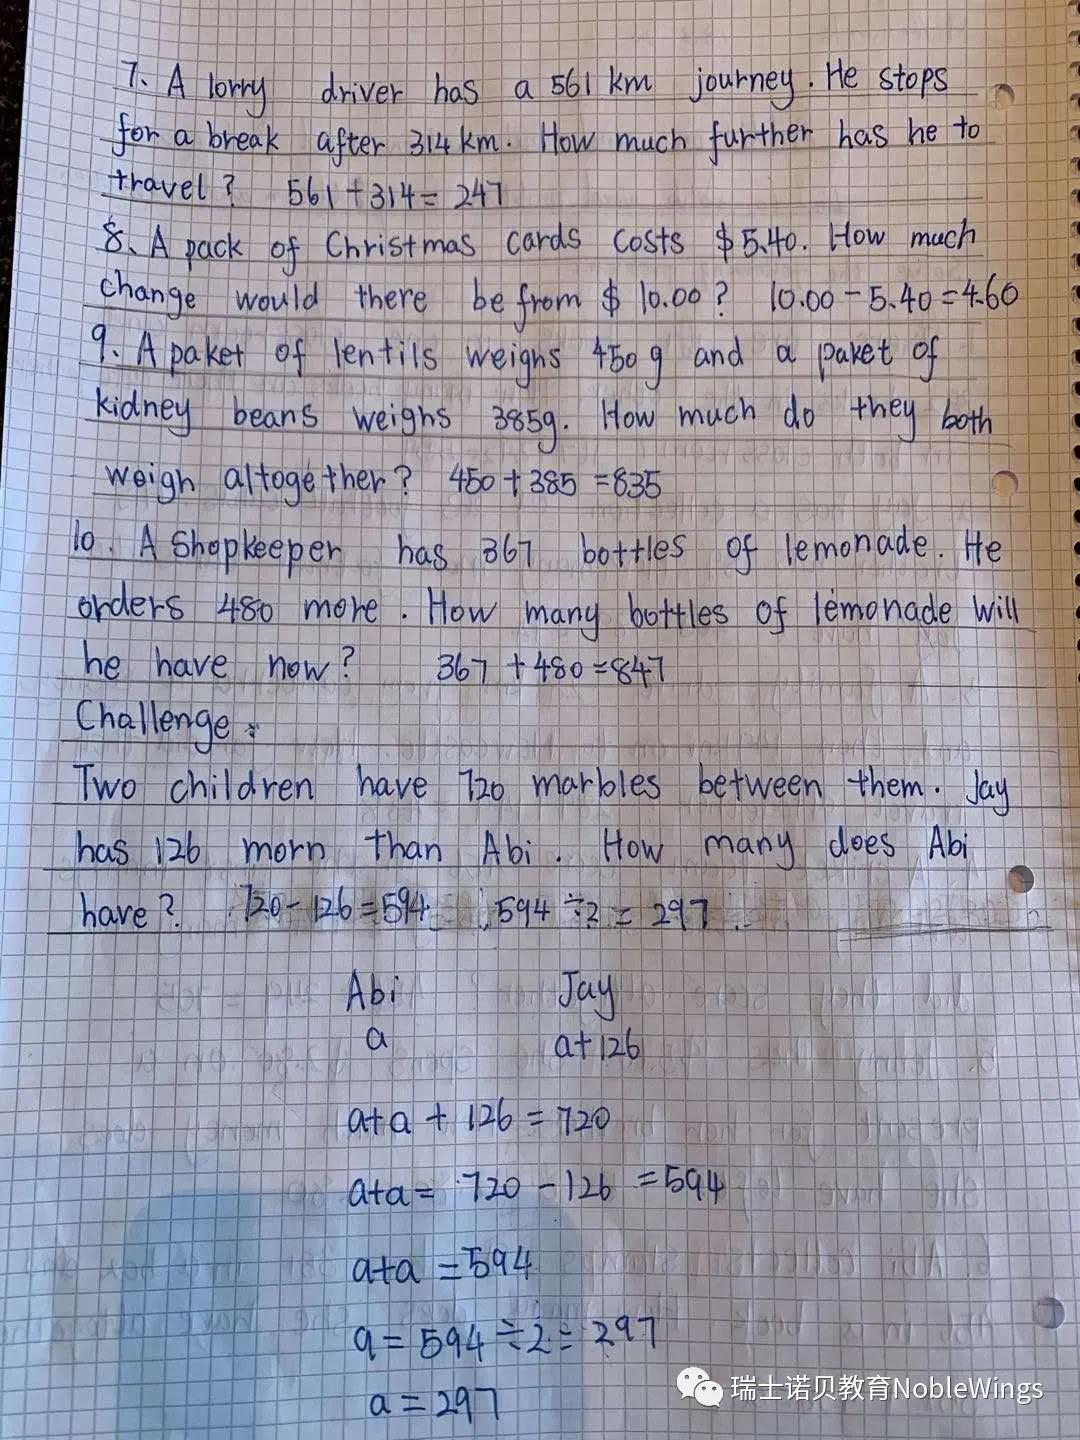 7、A lorry driver has a 561 km journey. He stops
for a break after 314 km. How much further has he to
travel? 561+314=247
8、A pack of Christmas cards costs $5.40. How much
change would there be from $ 10.00? 10.00-5.40=4.60
9、A paket of lentils weighs 450g and a paket of
kidney beans weighs 385g. How much do they both
weigh altogether? 450+385=835
10. A Shopkeeper has 367 bottles of lemonade. He
orders 480 more. How many bottles of lemonade will
he have now? 367+480=847
Challenge:
Two children have 720 marbles between them. Jay
has 126 morn than Abi. How many does Abi
have? 720-126=594 594÷2=297
Abi Jay
a a+126
a+a+126=720
a+a=720-126=594
a+a=594
a=594÷2=297
a=297
瑞士诺贝教育NobleWings